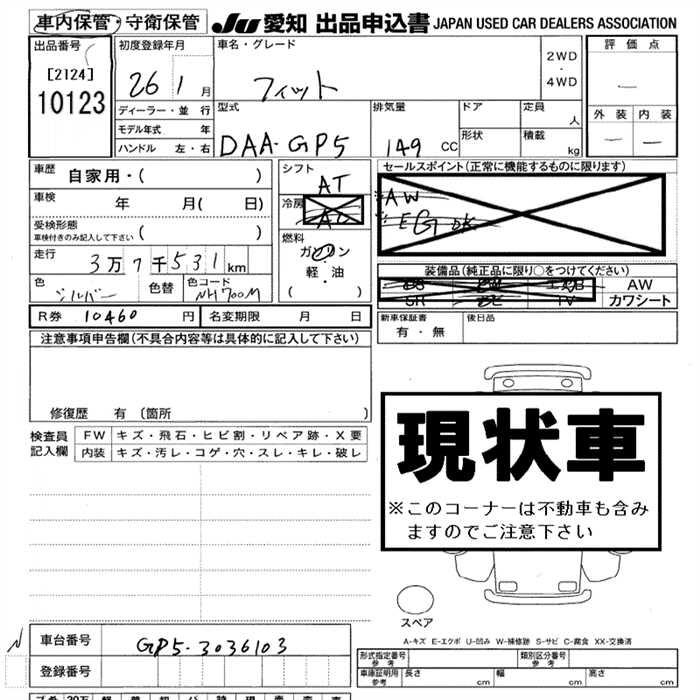 車内保管・守衛保管 JU 愛知 出品申込書 JAPAN USED CAR DEALERS ASSOCIATION
出品番号 初度登録年月 車名・グレード 評価点
[2124] 2WD
・
10123 26 1月 フィット 4WD
ー
ディーラー・並行 型式 排気量 ドア 定員 人 外装 内装
モデル年式 年 形状 積載
ハンドル 左・右 DAA-GP5 149 CC kg ー ー
車歴 自家用・( ) シフト AT セールスポイント(正常に機能するものに限ります)
車検 年 月( 日) 冷房 AC AW
受検形態 EG OK
車検付きのみ記入して下さい 燃料
走行 3万7千531km ガソリン 装備品(純正品に限り○をつけてください)
色 シルバー 色替 色コード NH700M 軽・油 AW
・( ) SR TV カワシート
R券 10460 円 名変期限 月 日 新車保証書 有・無 後日品
注意事項申告欄(不具合内容等は具体的に記入して下さい)
修復歴 有 (箇所 )
検査員 FW キズ・飛石・ヒビ割・リペア跡・X要
記入欄 内装 キズ・汚レ・コゲ・穴・スレ・キレ・破レ
現状車
※このコーナーは不動車も含み
ますのでご注意下さい
スペア
A-キズ E-エクボ U-凹み W-補修跡 S-サビ C-腐食 XX-交換済
N 車台番号 GP5-3036103
登録番号
形式指定番号 参考 類別区分番号 参考
車庫証明用 参考 長さ cm 幅 cm 高さ cm